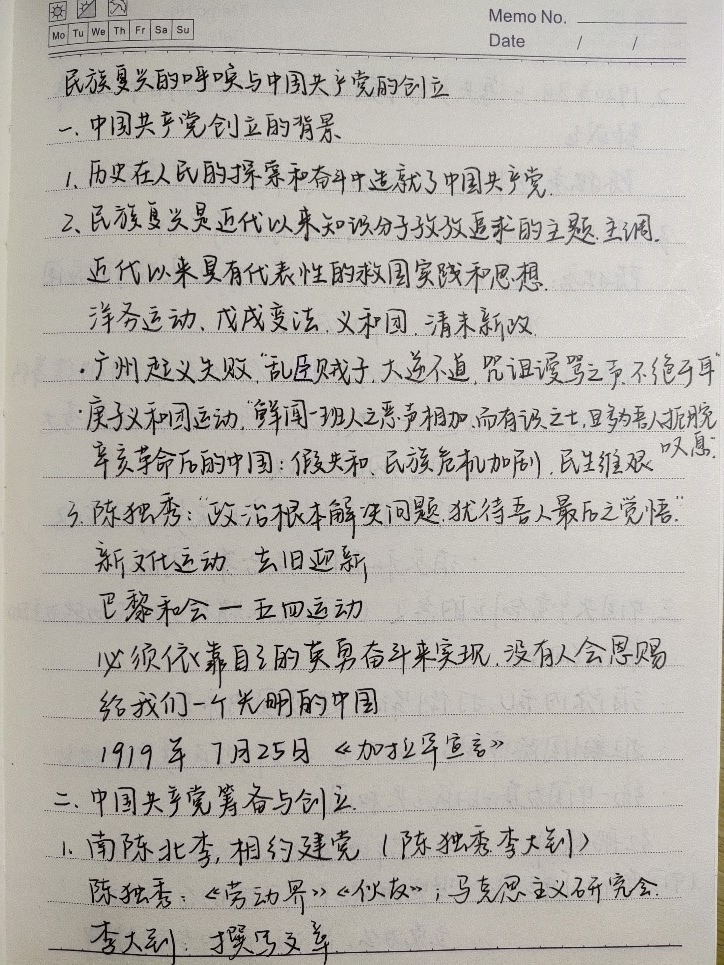 Memo No.
Mo Tu We Th Fr Sa Su
Date / /
民族复兴的呼唤与中国共产党的创立
一、中国共产党创立的背景
1、历史在人民的探索和奋斗中造就了中国共产党.
2、民族复兴是近代以来知识分子孜孜追求的主题.主调.
近代以来具有代表性的救国实践和思想.
洋务运动、戊戌变法、义和团、清末新政
·广州起义失败,“乱臣贼子,大逆不道,咒诅谩骂之声,不绝于耳”
·庚子义和团运动,“鲜闻一班人之恶声相加,而有识之士,且多为吾人扼腕
叹息”
辛亥革命后的中国:假共和、民族危机加剧、民生维艰
3.陈独秀:“政治根本解决问题,犹待吾人最后之觉悟.”
新文化运动 去旧迎新
巴黎和会—五四运动
必须依靠自己的英勇奋斗来实现,没有人会恩赐
给我们一个光明的中国
1919年 7月25日 《加拉罕宣言》
二、中国共产党筹备与创立.
1、南陈北李,相约建党(陈独秀李大钊)
陈独秀:《劳动界》《伙友》;马克思主义研究会.
李大钊:撰写文章